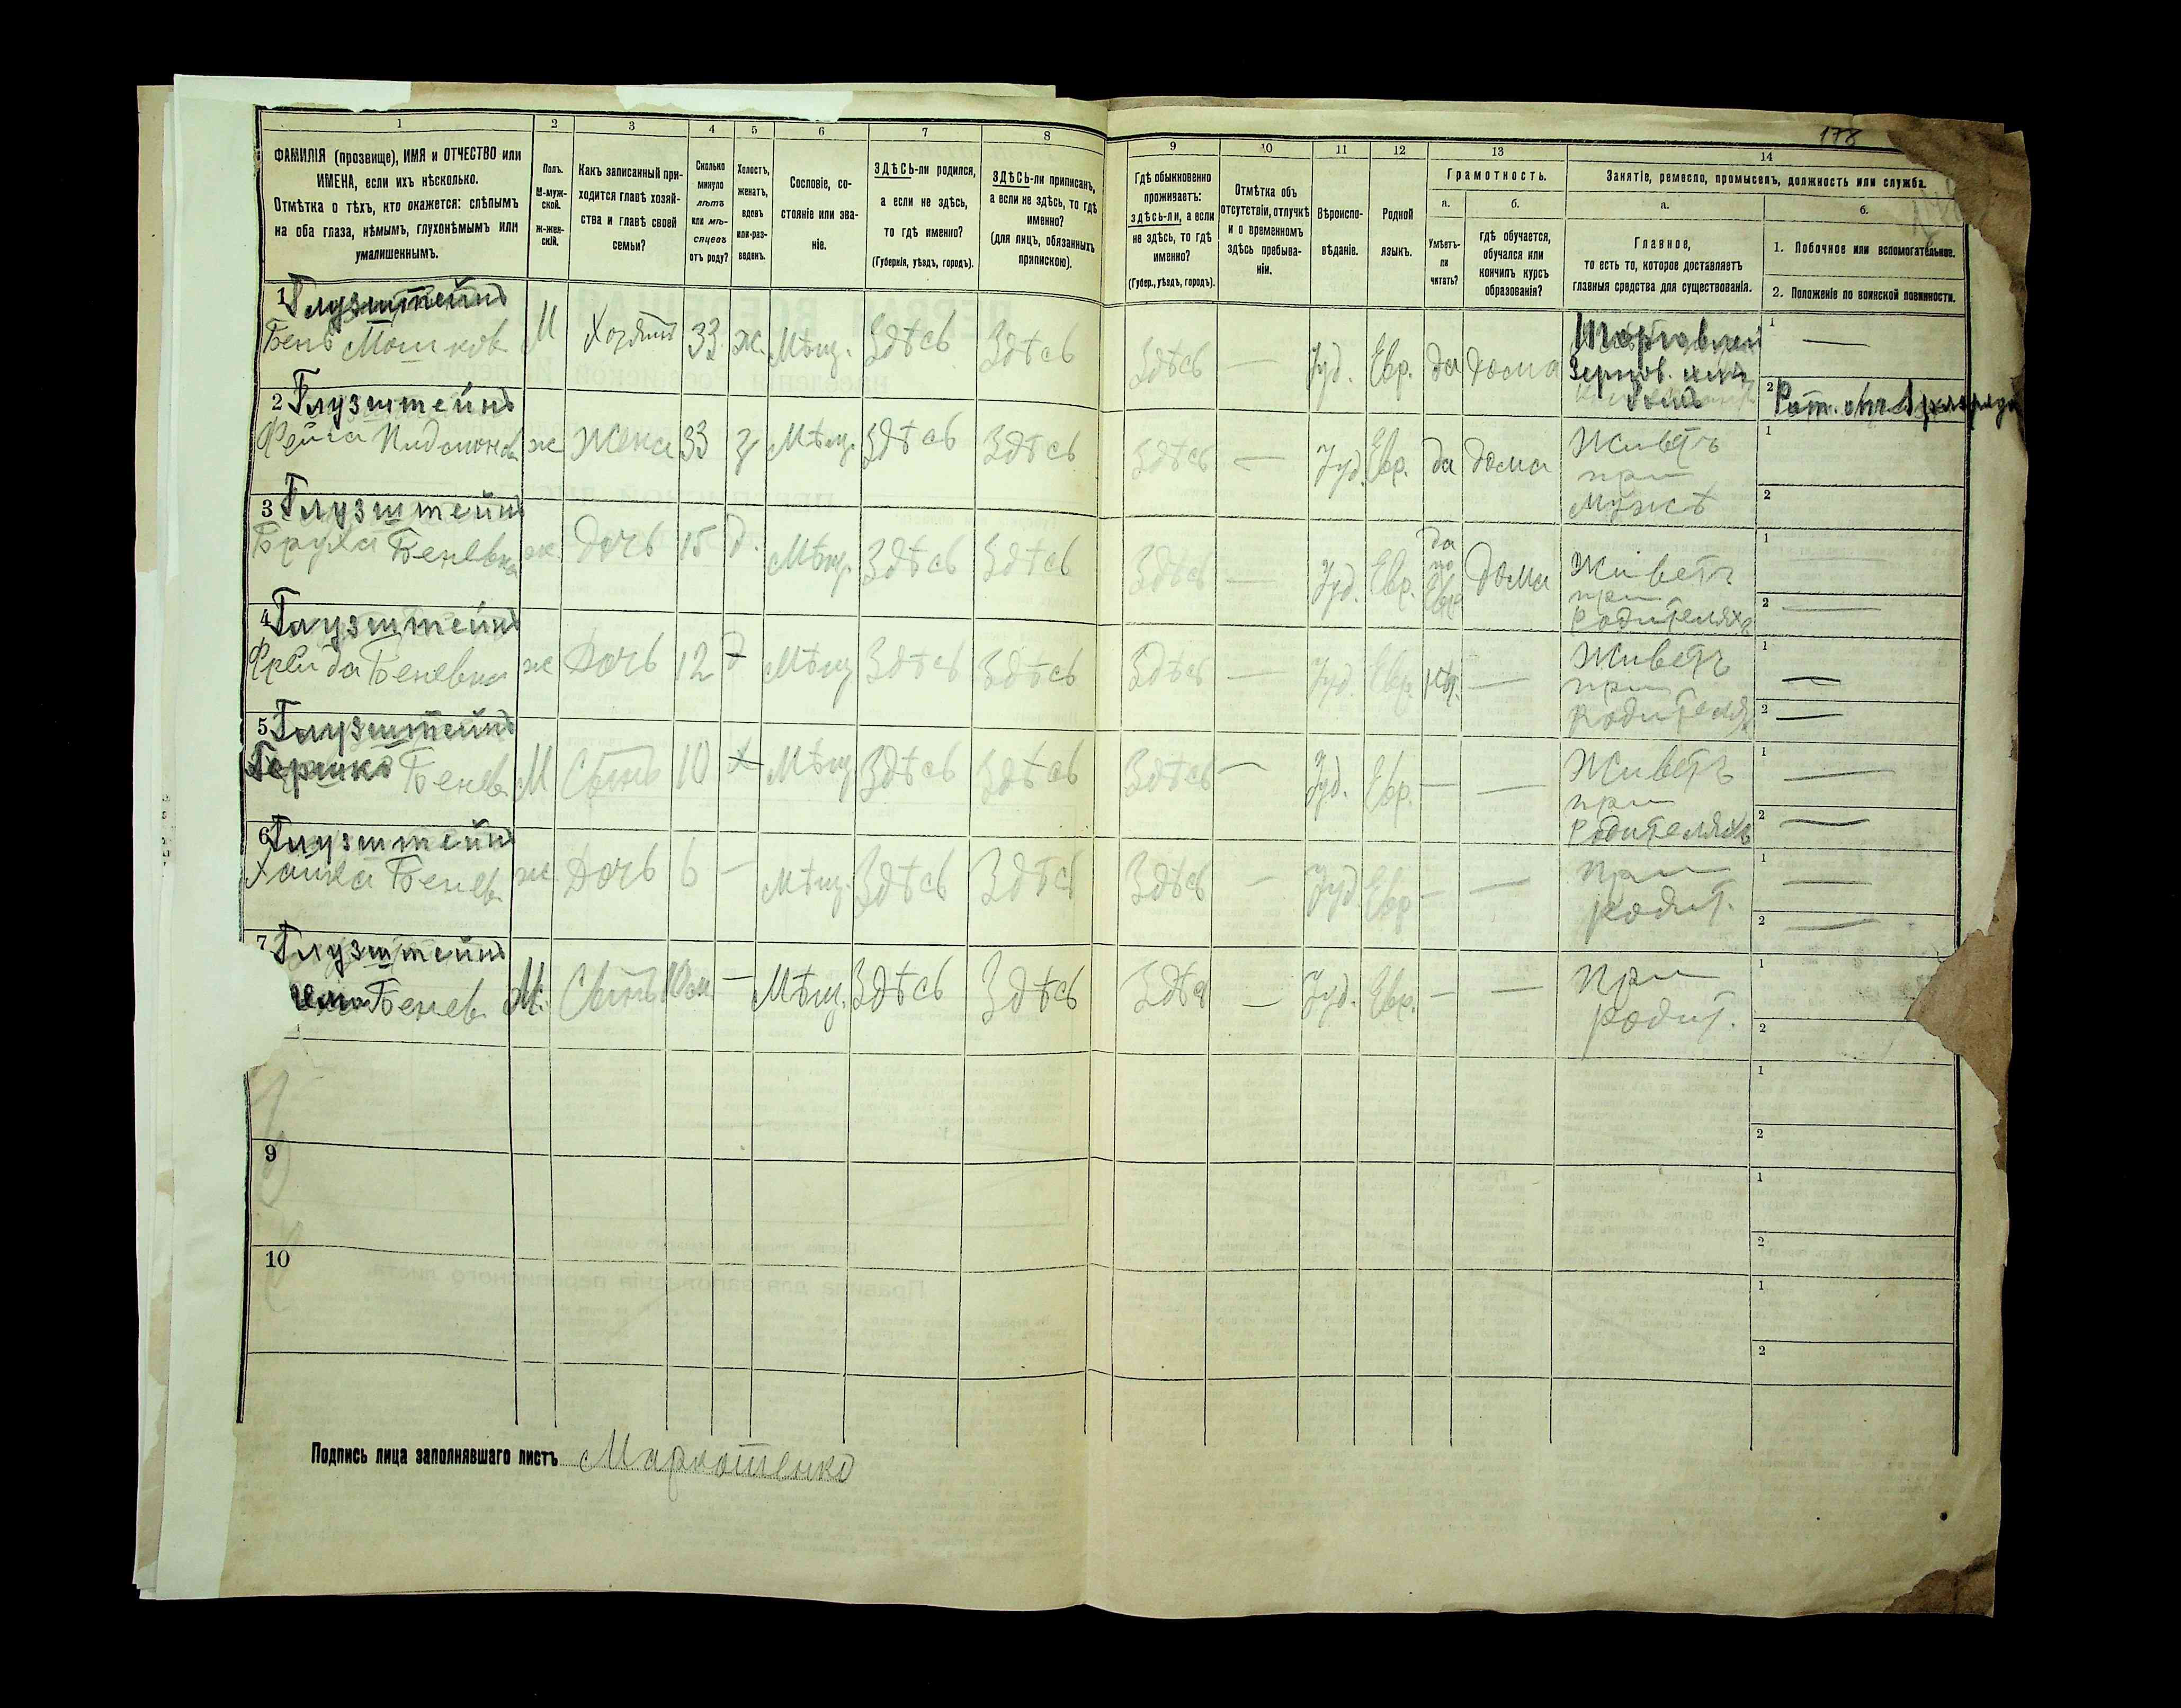 178
1 2 3 4 5 6 7 8 9 10 11 12 13 14
ФАМИЛІЯ (прозвище), ИМЯ и ОТЧЕСТВО или
ИМЕНА, если ихъ нѣсколько.
Отмѣтка о тѣхъ, кто окажется: слѣпымъ
на оба глаза, нѣмымъ, глухонѣмымъ или
умалишеннымъ.
Полъ.
М-муж-
ской.
Ж-жен-
скій.
Какъ записанный при-
ходится главѣ хозяй-
ства и главѣ своей
семьи?
Сколько
минуло
лѣтъ
или мѣ-
сяцевъ
отъ роду?
Холостъ,
женатъ,
вдовъ
или раз-
веденъ.
Сословіе, со-
стояніе или зва-
ніе.
ЗДѢСЬ-ли родился,
а если не здѣсь,
то гдѣ именно?
(Губернія, уѣздъ, городъ).
ЗДѢСЬ-ли приписанъ,
а если не здѣсь, то гдѣ
именно?
(для лицъ, обязанныхъ
припискою).
Гдѣ обыкновенно
проживаетъ:
здѣсь-ли, а если
не здѣсь, то гдѣ
именно?
(Губер., уѣздъ, городъ).
Отмѣтка объ
отсутствіи, отлучкѣ
и о временномъ
здѣсь пребыва-
ніи.
Вѣроиспо-
вѣданіе.
Родной
языкъ.
Грамотность.
а.
Умѣетъ-
ли
читать?
б.
гдѣ обучается,
обучался или
кончилъ курсъ
образованія?
Занятіе, ремесло, промыселъ, должность или служба.
а.
Главное,
то есть то, которое доставляетъ
главныя средства для существованія.
б.
1. Побочное или вспомогательное.
2. Положеніе по воинской повинности.
1 Глузштейнъ
Бень Мошков М Хозяинъ 33 ж. Мѣщ. Здѣсь Здѣсь Здѣсь — Іуд. Евр. да дома
Торговлей
Зернов.
1 —
2 Рат.
2 Глузштейнъ
Фейга ж Жена 33 з Мѣщ. Здѣсь Здѣсь Здѣсь — Іуд. Евр. да дома
Живетъ
при
Мужѣ
1
2
3 Глузштейнъ
Бруха Беневна ж Дочь 15 д. Мѣщ. Здѣсь Здѣсь Здѣсь — Іуд. Евр. да по Евр. дома
Живетъ
при
родителяхъ
1 —
2 —
4 Глузштейнъ
Фрейда Беневна ж Дочь 12 д Мѣщ Здѣсь Здѣсь Здѣсь — Іуд. Евр. —
Живетъ
при
родителях
1 —
2 —
5 Глузштейнъ
Гершко Бенев М Сынъ 10 х Мѣщ Здѣсь Здѣсь Здѣсь — Іуд. Евр. — —
Живетъ
при
родителяхъ
1 —
2 —
6 Глузштейнъ
Бенев ж Дочь 6 — Мѣщ. Здѣсь Здѣсь Здѣсь — Іуд Евр — —
При
родит.
1 —
2 —
7 Глузштейнъ
Бенев М. Сынъ 10 м — Мѣщ. Здѣсь Здѣсь Здѣсь — Іуд. Евр. — —
При
родит.
1
2
1
2
9
1
2
10
1
2
Подпись лица заполнявшаго листъ